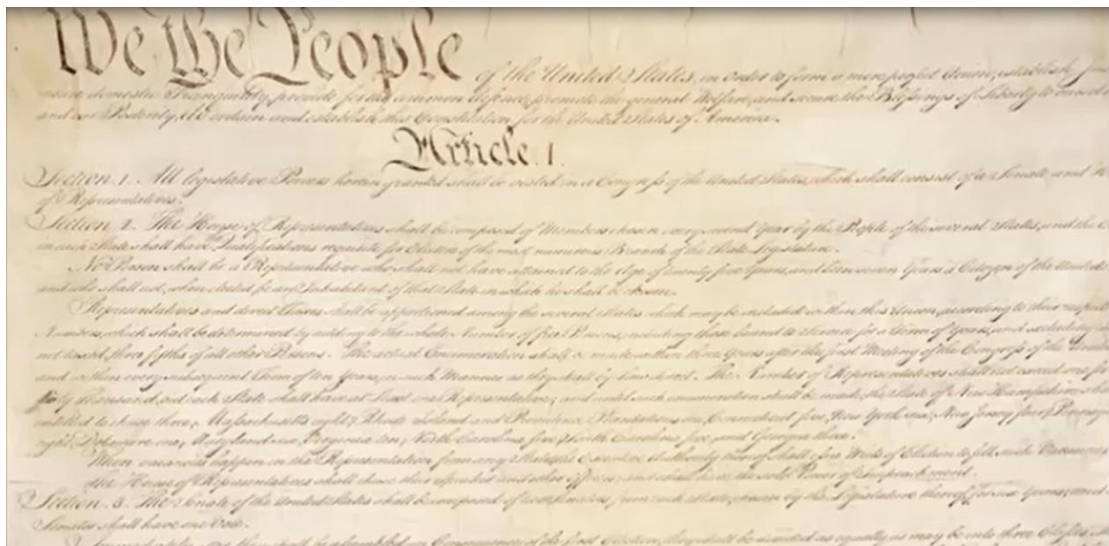 We the People of the United States, in Order to form a more perfect Union, establish
insure domestic Tranquility, provide for the common defence, promote the general Welfare, and secure the Blessings of Liberty to
and our Posterity, do ordain and establish this Constitution for the United States of America.
Article. I.
Section. 1. All legislative Powers herein granted shall be vested in a Congress of the United States, which shall consist of a Senate and
of Representatives.
Section. 2. The House of Representatives shall be composed of Members chosen every second Year by the People of the several States, and the
in each State shall have the Qualifications requisite for Electors of the most numerous Branch of the State Legislature.
No Person shall be a Representative who shall not have attained to the Age of twenty five Years, and been seven Years a Citizen of the United
and who shall not, when elected, be an Inhabitant of that State in which he shall be chosen.
Representatives and direct Taxes shall be apportioned among the several States which may be included within this Union, according to their
Numbers, which shall be determined by adding to the whole Number of free Persons, including those bound to Service for a Term of Years, and excluding
not taxed, three fifths of all other Persons. The actual Enumeration shall be made within three Years after the first Meeting of the Congress of the United
and within every subsequent Term of ten Years, in such Manner as they shall by Law direct. The Number of Representatives shall not exceed one for
thirty Thousand, but each State shall have at Least one Representative; and until such enumeration shall be made, the State of New Hampshire shall
entitled to chuse three, Massachusetts eight, Rhode Island and Providence Plantations one, Connecticut five, New York six, New Jersey four,
eight, Delaware one, Maryland six, Virginia ten, North Carolina five, South Carolina five, and Georgia three.
When vacancies happen in the Representation from any State, the Executive Authority thereof shall issue Writs of Election to fill such Vacancies.
The House of Representatives shall chuse their Speaker and other Officers; and shall have the sole Power of Impeachment.
Section. 3. The Senate of the United States shall be composed of two Senators from each State, chosen by the Legislature thereof, for six Years; and
Senator shall have one Vote.
Immediately after they shall be assembled in Consequence of the first Election, they shall be divided as equally as may be into three Classes.